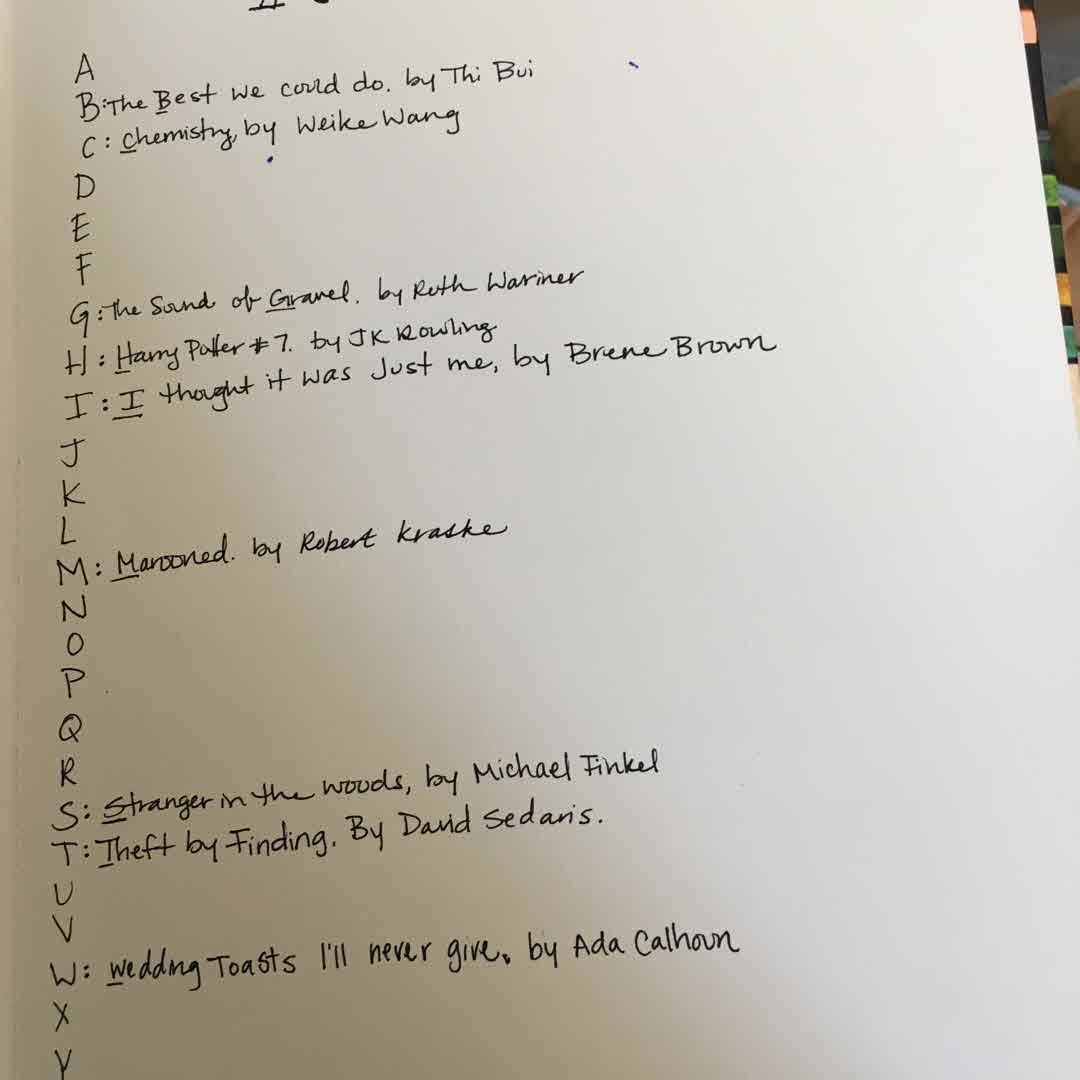 A
B: The Best we could do. by Thi Bui
C: Chemistry, by Weike Wang
D
E
F
G: The Sound of Gravel. by Ruth Wariner
H: Harry Potter #7. by JK Rowling
I: I thought it was Just me, by Brene Brown
J
K
L
M: Marooned. by Robert Kraske
N
O
P
Q
R
S: Stranger in the woods, by Michael Finkel
T: Theft by Finding. By David Sedaris.
U
V
W: Wedding Toasts I'll never give. by Ada Calhoun
X
Y